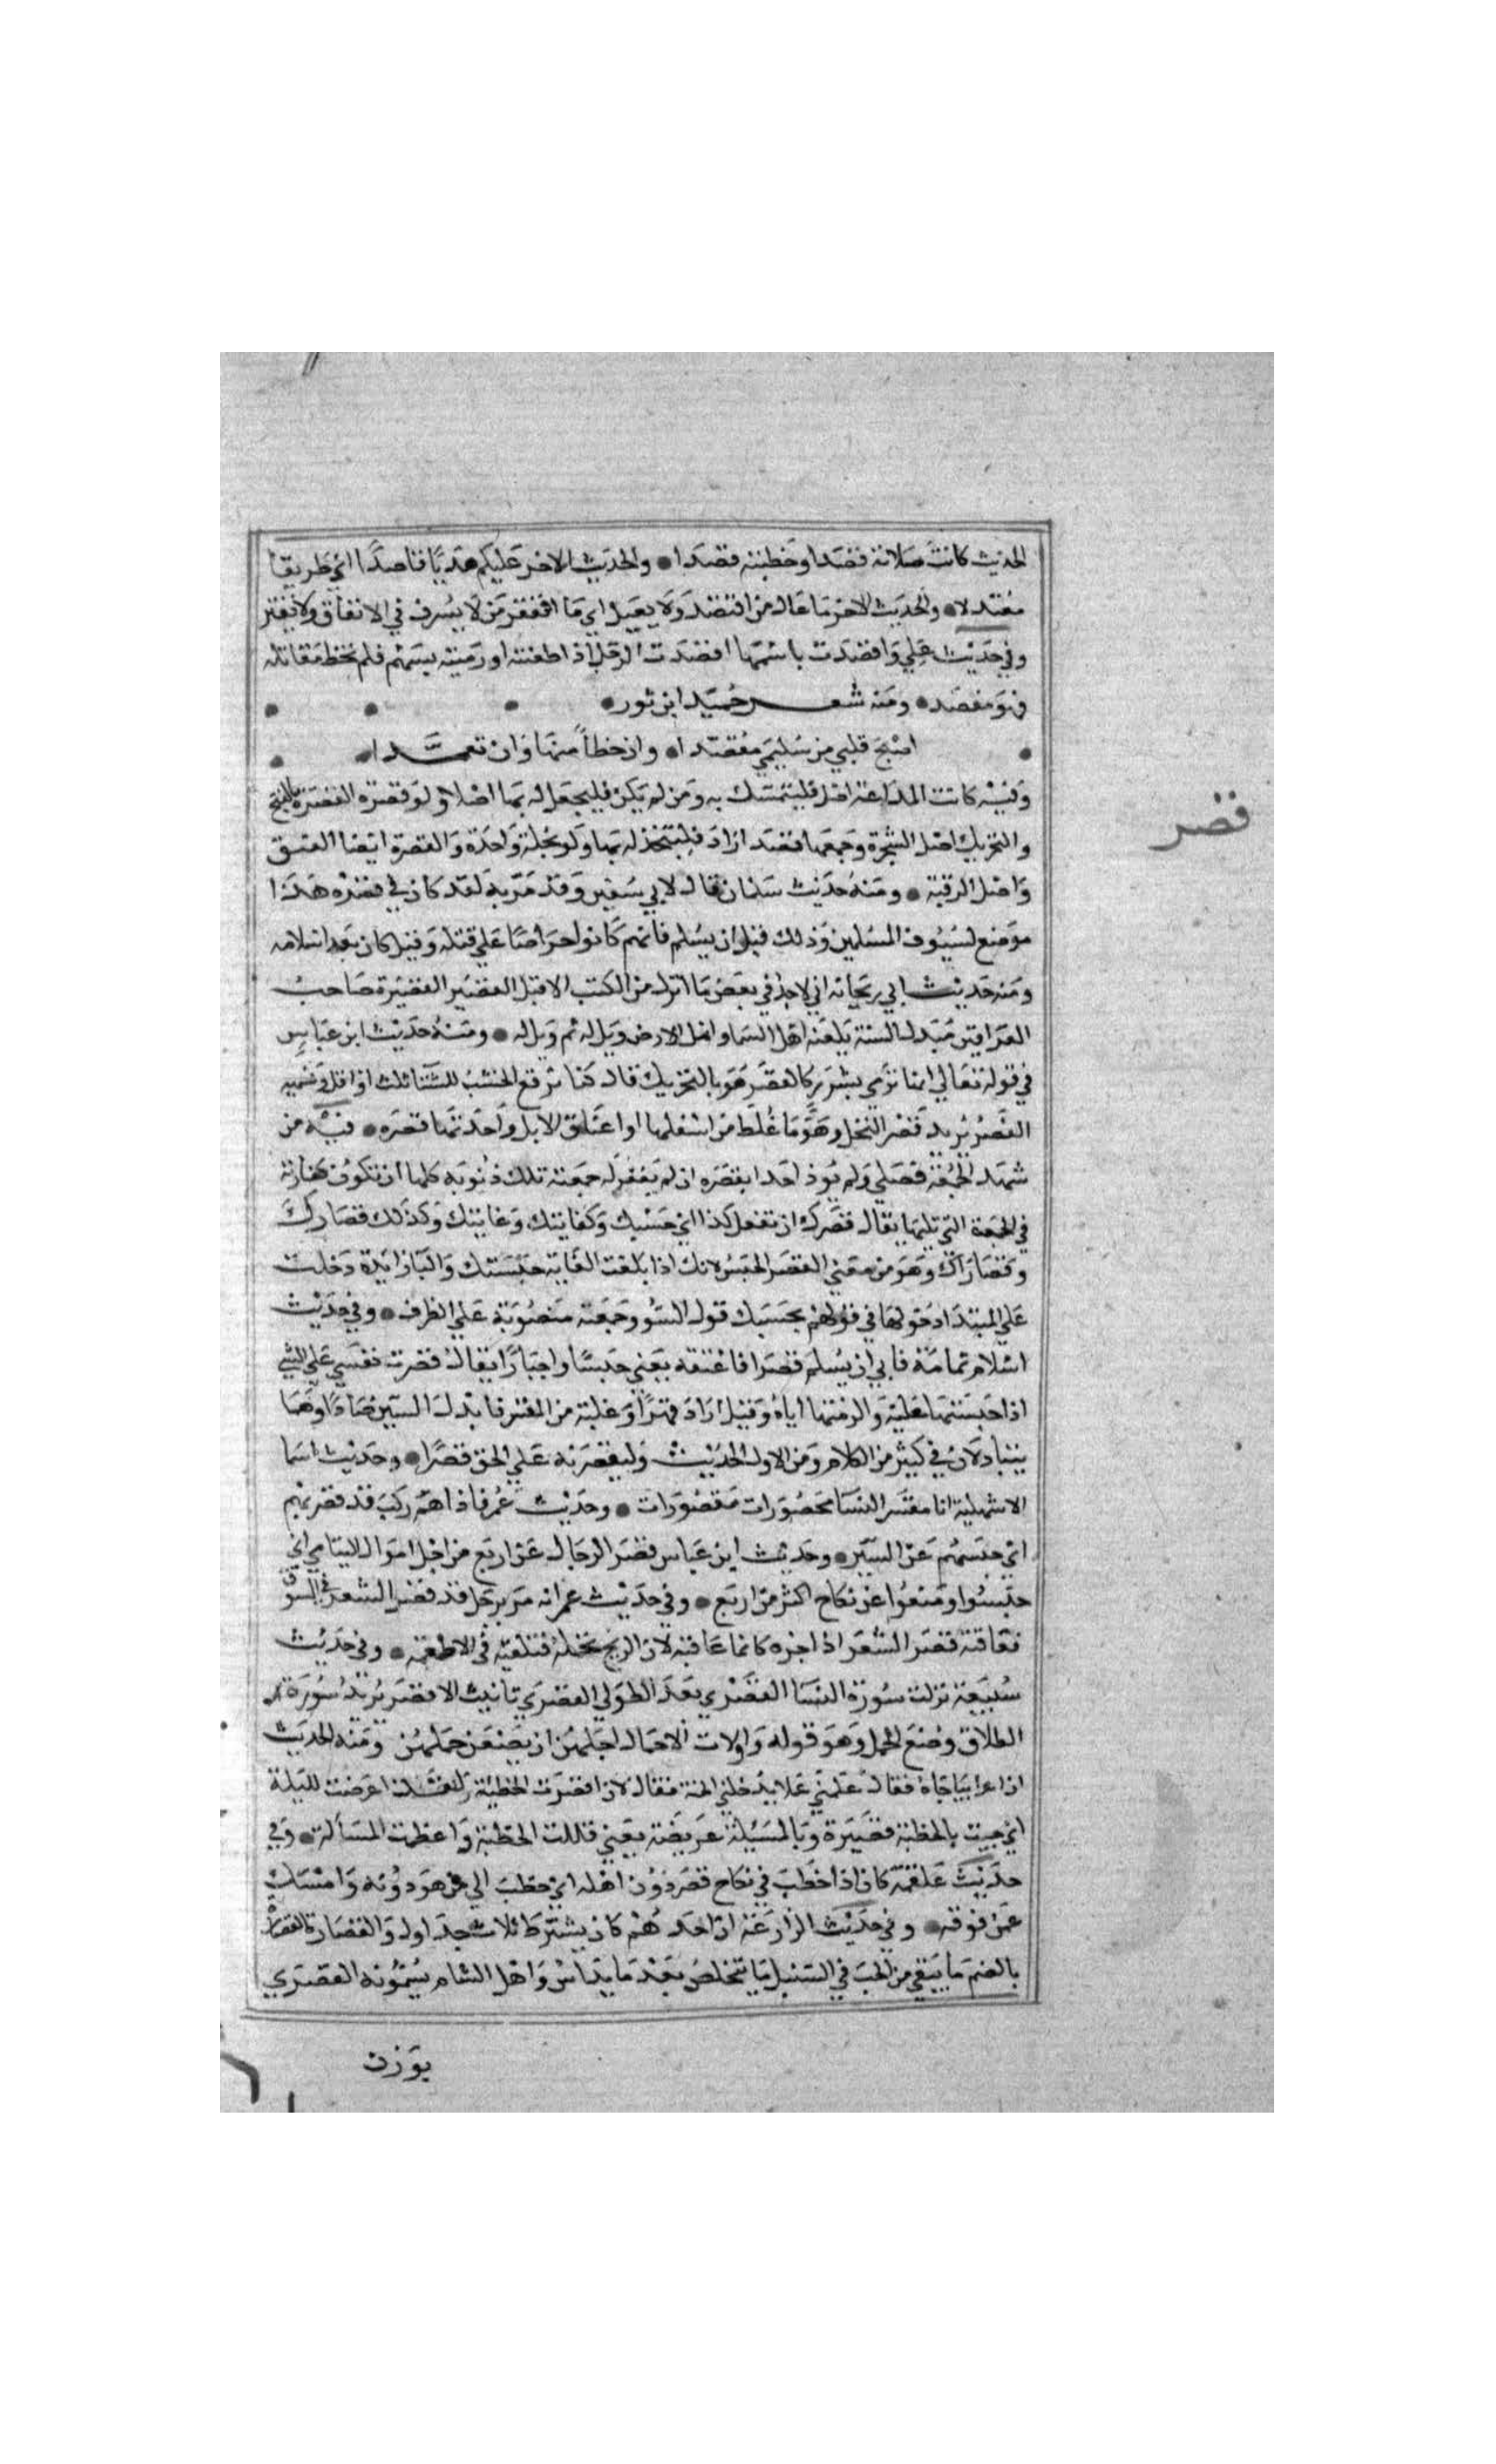 الحديث كانت صلاته قصدا وخطبته قصدا • والحديث الاخر عليكم هديا قاصدا اي طريقا
معتدلا • والحديث الاخر ما عال من اقتصد ولا يعيل اي ما افتقر من لا يسرف في الانفاق ولا يقتر
وفي حديث علي واقصدت باسهمها اقصدت الرجل اذا طعنته او رميته بسهم فلم تخط مقاتله
فهو مقصد • ومنه شعر حميد ابن ثور •
اصبح قلبي من سليمي مقصدا • وان خطأ منها وان تعمدا •
قصر
وفيه كانت المدا عنه اصل فليتمسك به ومن لم يكن فليجعل له بها اصلا ولو قصرة القصرة بالفتح
والتحريك اصل الشجرة وجمعها قصد اراد فليتخذ له بها ولو نخلة واحدة والقصرة ايضا العنق
واصل الرقبة • ومنه حديث سلمان قال لابي سفين وقد مر به لقد كان في قصره هذا
موضع لسيوف المسلمين وذلك قبل ان يسلم فانهم كانوا حراصا علي قتله وقيل كان بعد اسلامه
ومنه حديث ابي ريحانه اني لاجد في بعض ما انزل من الكتب الاقبل القصير القصيرة صاحب
العراقين مبدل السنة يلعنه اهل السما واهل الارض ويل له ثم ويل له • ومنه حديث ابن عباس
في قوله تعالي انها ترمي بشرر كالقصر هو بالتحريك قال كنا نرفع الخشب للشتا ثلث اذرع او اقل ونسميه
القصر يريد قصر النخل وهو ما غلظ من اسفلها او اعناق الابل واحدتها قصره • فيه من
شهد الجمعة فصلي ولم يوذ احدا بقصره ان لم يغفر له جمعته تلك ذنوبه كلها ان تكون كفارته
في الجمعة التي تليها يقال قصرك ان تفعل كذا اي حسبك وكفايتك وغايتك وكذلك قصارك
وقصاراك وهو من معني القصر الحبس لانك اذا بلغت الغاية حبستك والبا زايدة دخلت
علي المبتدا دخولها في قولهم بحسبك قول السو وجمعته منصوبة علي الظرف • وفي حديث
اسلام ثمامة فابي ان يسلم قصرا فاعتقه يعني حبسا واجبارا يقال قصرت نفسي علي الشي
اذا حبستها عليه والزمتها اياه وقيل اراد قهرا وغلبة من القسر فابدل السين صادا وهما
يتبادلان في كثير من الكلام ومن الاول الحديث وليقصرنه علي الحق قصرا • وحديث اسما
الاشهلية انا معشر النسا محصورات مقصورات • وحديث عمر فاذا هم ركب قد قصر بهم
اي حبسهم عن السير • وحديث ابن عباس قصر الرجال عن اربع من اجل اموال اليتامي اي
حبسوا ومنعوا عن نكاح اكثر من اربع • وفي حديث عمر انه مر برجل قد قصر الشعر في السوق
فعاقبه قصر الشعر اذا جزه كانما عاقبه لان الريح تحمله فتلقيه في الاطعمة • وفي حديث
سبيعة نزلت سورة النسا القصري بعد الطولي القصري تانيث الاقصر يريد سورة
الطلاق وضع الحمل وهو قوله واولات الاحمال اجلهن ان يضعن حملهن ومنه الحديث
ان اعرابيا جاه فقال علمني عملا يدخلني الجنة فقال لان اقصرت الخطبة لقد اعرضت المسئلة
اي جيت بالخطبة قصيرة وبالمسيلة عريضة يعني قللت الخطبة واعظمت المسألة • وفي
حديث علقمة كان اذا خطب في نكاح قصر دون اهله اي خطب الي من هو دونه وامسك
عمن فوقه • وفي حديث المزارعة ان احدهم كان يشترط ثلاث جداول والقصارة القصارة
بالضم ما يبقي من الحب في السنبل مما لا يتخلص بعد ما يداس واهل الشام يسمونه القصري
بوزن